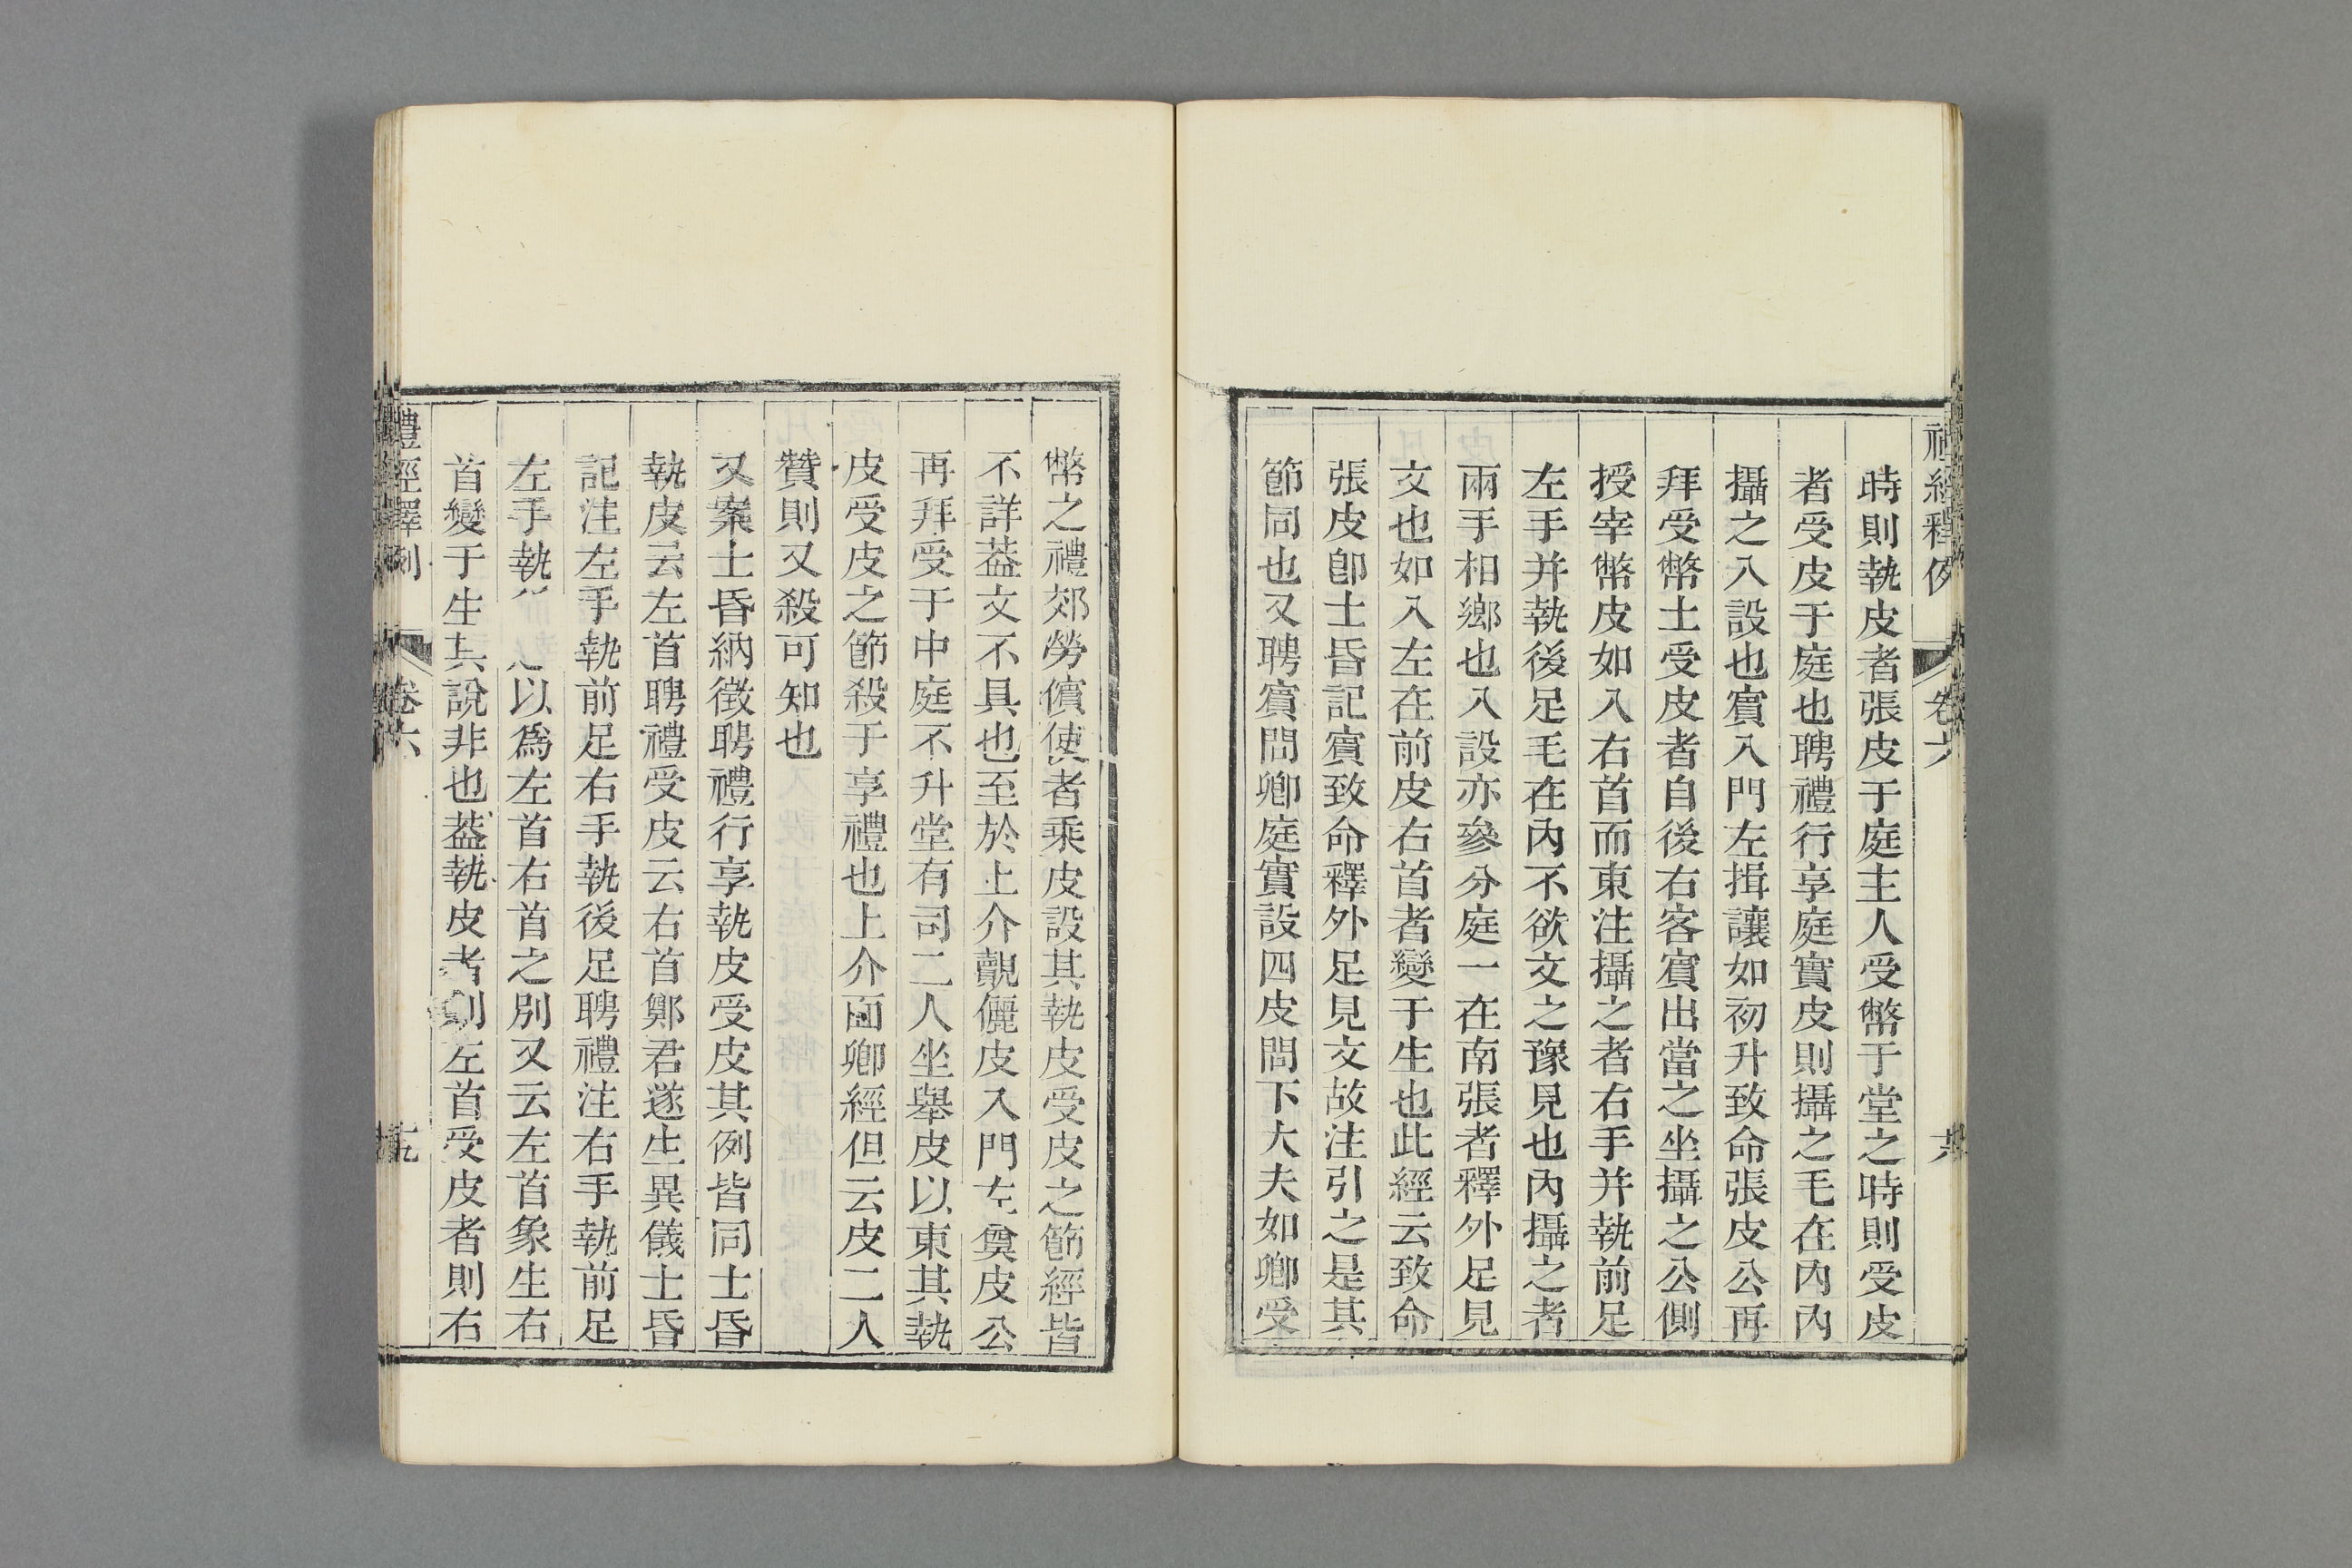 禮經釋例 卷六
時則執皮者張皮于庭主人受幣于堂之時則受皮
者受皮于庭也聘禮行享庭實皮則攝之毛在內內
攝之入設也賓入門左揖讓如初升致命張皮公再
拜受幣士受皮者自後右客賓出當之坐攝之公側
授宰幣皮如入右首而東注攝之者右手并執前足
左手并執後足毛在內不欲文之豫見也內攝之者
兩手相鄉也入設亦參分庭一在南張者釋外足見
文也如入左在前皮右首者變于生也此經云致命
張皮卽士昏記賓致命釋外足見文故注引之是其
節同也又聘賓問卿庭實設四皮問下大夫如卿受
幣之禮郊勞儐使者乘皮設其執皮受皮之節經皆
不詳葢文不具也至於上介覿儷皮入門左奠皮公
再拜受于中庭不升堂有司二人坐舉皮以東其執
皮受皮之節殺于享禮也上介面卿經但云皮二人
贊則又殺可知也
又案士昏納徵聘禮行享執皮受皮其例皆同士昏
執皮云左首聘禮受皮云右首鄭君遂生異儀士昏
記注左手執前足右手執後足聘禮注右手執前足
左手執 以爲左首右首之別又云左首象生右
首變于生其說非也葢執皮者則左首受皮者則右
禮經釋例 卷六